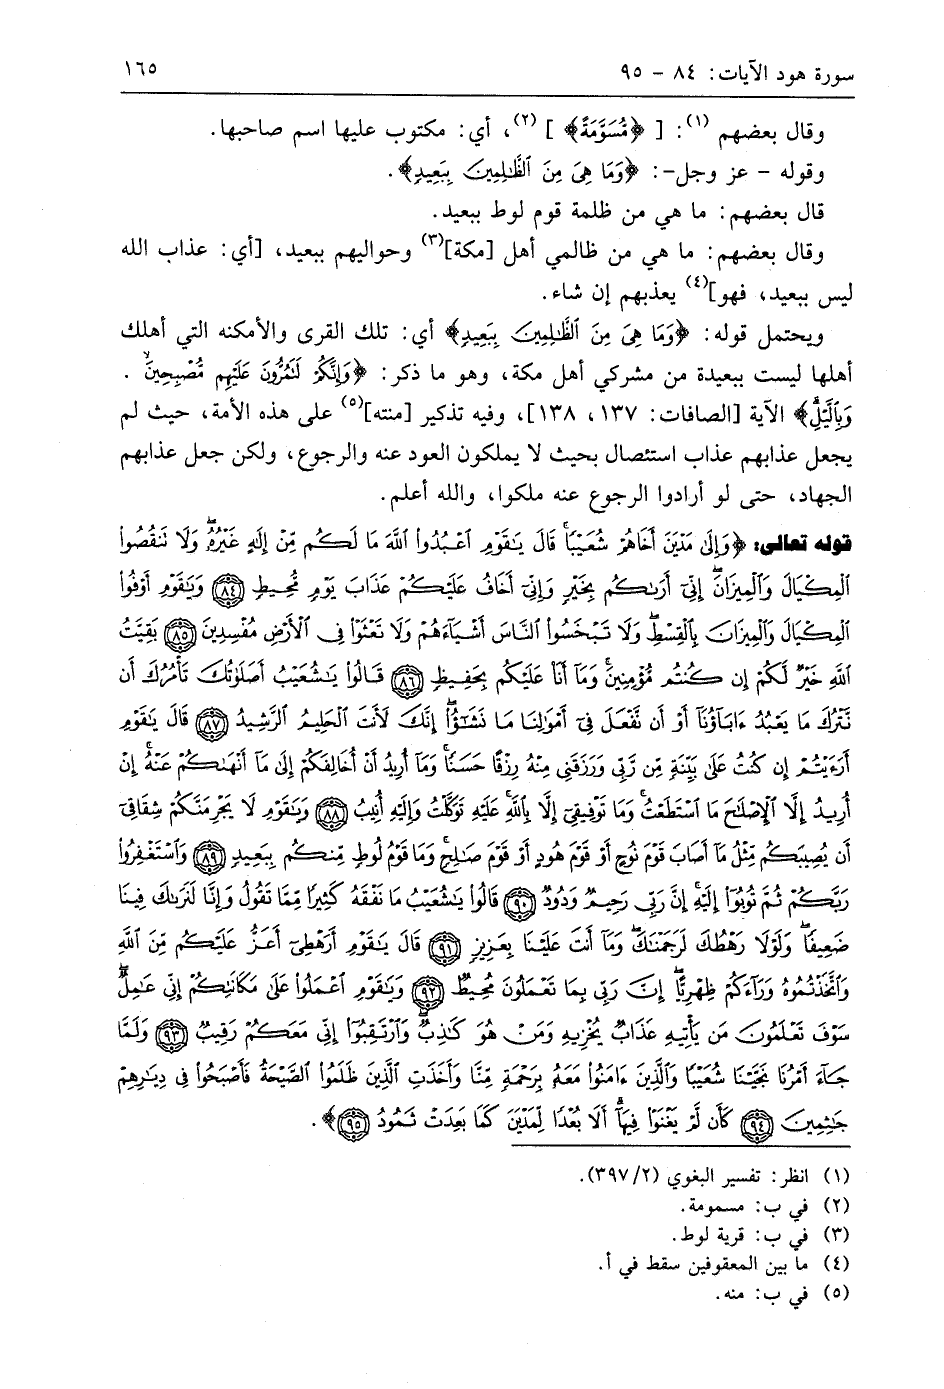 سورة هود الآيات: ٨٤ - ٩٥ ١٦٥
وقال بعضهم (١): [ ﴿مُّسَوَّمَةً﴾ ] (٢)، أي: مكتوب عليها اسم صاحبها.
وقوله - عز وجل-: ﴿وَمَا هِىَ مِنَ ٱلظَّٰلِمِينَ بِبَعِيدٍ﴾.
قال بعضهم: ما هي من ظلمة قوم لوط ببعيد.
وقال بعضهم: ما هي من ظالمي أهل [مكة](٣) وحواليهم ببعيد، [أي: عذاب الله
ليس ببعيد، فهو](٤) يعذبهم إن شاء.
ويحتمل قوله: ﴿وَمَا هِىَ مِنَ ٱلظَّٰلِمِينَ بِبَعِيدٍ﴾ أي: تلك القرى والأمكنه التي أهلك
أهلها ليست ببعيدة من مشركي أهل مكة، وهو ما ذكر: ﴿وَإِنَّكُمْ لَتَمُرُّونَ عَلَيْهِم مُّصْبِحِينَۙ .
وَبِٱلَّيْلِۗ﴾ الآية [الصافات: ١٣٧، ١٣٨]، وفيه تذكير [منته](٥) على هذه الأمة، حيث لم
يجعل عذابهم عذاب استئصال بحيث لا يملكون العود عنه والرجوع، ولكن جعل عذابهم
الجهاد، حتى لو أرادوا الرجوع عنه ملكوا، والله أعلم.
قوله تعالى: ﴿وَإِلَىٰ مَدْيَنَ أَخَاهُمْ شُعَيْبًاۚ قَالَ يَٰقَوْمِ ٱعْبُدُوا۟ ٱللَّهَ مَا لَكُم مِّنْ إِلَٰهٍ غَيْرُهُۥۖ وَلَا تَنقُصُوا۟
ٱلْمِكْيَالَ وَٱلْمِيزَانَۖ إِنِّىٓ أَرَىٰكُم بِخَيْرٍ وَإِنِّىٓ أَخَافُ عَلَيْكُمْ عَذَابَ يَوْمٍ مُّحِيطٍ ٨٤ وَيَٰقَوْمِ أَوْفُوا۟
ٱلْمِكْيَالَ وَٱلْمِيزَانَ بِٱلْقِسْطِۖ وَلَا تَبْخَسُوا۟ ٱلنَّاسَ أَشْيَآءَهُمْ وَلَا تَعْثَوْا۟ فِى ٱلْأَرْضِ مُفْسِدِينَ ٨٥ بَقِيَّتُ
ٱللَّهِ خَيْرٌ لَّكُمْ إِن كُنتُم مُّؤْمِنِينَۚ وَمَآ أَنَا۠ عَلَيْكُم بِحَفِيظٍ ٨٦ قَالُوا۟ يَٰشُعَيْبُ أَصَلَوٰتُكَ تَأْمُرُكَ أَن
نَّتْرُكَ مَا يَعْبُدُ ءَابَآؤُنَآ أَوْ أَن نَّفْعَلَ فِىٓ أَمْوَٰلِنَا مَا نَشَٰٓؤُا۟ۖ إِنَّكَ لَأَنتَ ٱلْحَلِيمُ ٱلرَّشِيدُ ٨٧ قَالَ يَٰقَوْمِ
أَرَءَيْتُمْ إِن كُنتُ عَلَىٰ بَيِّنَةٍ مِّن رَّبِّى وَرَزَقَنِى مِنْهُ رِزْقًا حَسَنًاۚ وَمَآ أُرِيدُ أَنْ أُخَالِفَكُمْ إِلَىٰ مَآ أَنْهَىٰكُمْ عَنْهُۚ إِنْ
أُرِيدُ إِلَّا ٱلْإِصْلَٰحَ مَا ٱسْتَطَعْتُۚ وَمَا تَوْفِيقِىٓ إِلَّا بِٱللَّهِۚ عَلَيْهِ تَوَكَّلْتُ وَإِلَيْهِ أُنِيبُ ٨٨ وَيَٰقَوْمِ لَا يَجْرِمَنَّكُمْ شِقَاقِىٓ
أَن يُصِيبَكُم مِّثْلُ مَآ أَصَابَ قَوْمَ نُوحٍ أَوْ قَوْمَ هُودٍ أَوْ قَوْمَ صَٰلِحٍۚ وَمَا قَوْمُ لُوطٍ مِّنكُم بِبَعِيدٍ ٨٩ وَٱسْتَغْفِرُوا۟
رَبَّكُمْ ثُمَّ تُوبُوٓا۟ إِلَيْهِۚ إِنَّ رَبِّى رَحِيمٌ وَدُودٌ ٩٠ قَالُوا۟ يَٰشُعَيْبُ مَا نَفْقَهُ كَثِيرًا مِّمَّا تَقُولُ وَإِنَّا لَنَرَىٰكَ فِينَا
ضَعِيفًاۖ وَلَوْلَا رَهْطُكَ لَرَجَمْنَٰكَۖ وَمَآ أَنتَ عَلَيْنَا بِعَزِيزٍ ٩١ قَالَ يَٰقَوْمِ أَرَهْطِىٓ أَعَزُّ عَلَيْكُم مِّنَ ٱللَّهِ
وَٱتَّخَذْتُمُوهُ وَرَآءَكُمْ ظِهْرِيًّاۖ إِنَّ رَبِّى بِمَا تَعْمَلُونَ مُحِيطٌ ٩٢ وَيَٰقَوْمِ ٱعْمَلُوا۟ عَلَىٰ مَكَانَتِكُمْ إِنِّى عَٰمِلٌۖ
سَوْفَ تَعْلَمُونَ مَن يَأْتِيهِ عَذَابٌ يُخْزِيهِ وَمَنْ هُوَ كَٰذِبٌۖ وَٱرْتَقِبُوٓا۟ إِنِّى مَعَكُمْ رَقِيبٌ ٩٣ وَلَمَّا
جَآءَ أَمْرُنَا نَجَّيْنَا شُعَيْبًا وَٱلَّذِينَ ءَامَنُوا۟ مَعَهُۥ بِرَحْمَةٍ مِّنَّا وَأَخَذَتِ ٱلَّذِينَ ظَلَمُوا۟ ٱلصَّيْحَةُ فَأَصْبَحُوا۟ فِى دِيَٰرِهِمْ
جَٰثِمِينَ ٩٤ كَأَن لَّمْ يَغْنَوْا۟ فِيهَآۗ أَلَا بُعْدًا لِّمَدْيَنَ كَمَا بَعِدَتْ ثَمُودُ ٩٥﴾.
(١) انظر: تفسير البغوي (٣٩٧/٢).
(٢) في ب: مسمومة.
(٣) في ب: قرية لوط.
(٤) ما بين المعقوفين سقط في أ.
(٥) في ب: منه.